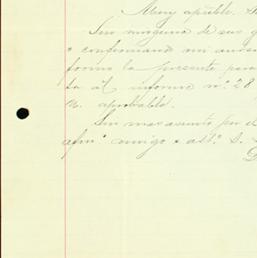 Muy apble.
Sin ninguna de sus g
o confirmando mi an
forma la presente para
ta al informe nº 28
N. aprobable.
Sin mas asunto por el
afmo amigo & atto. S. S.